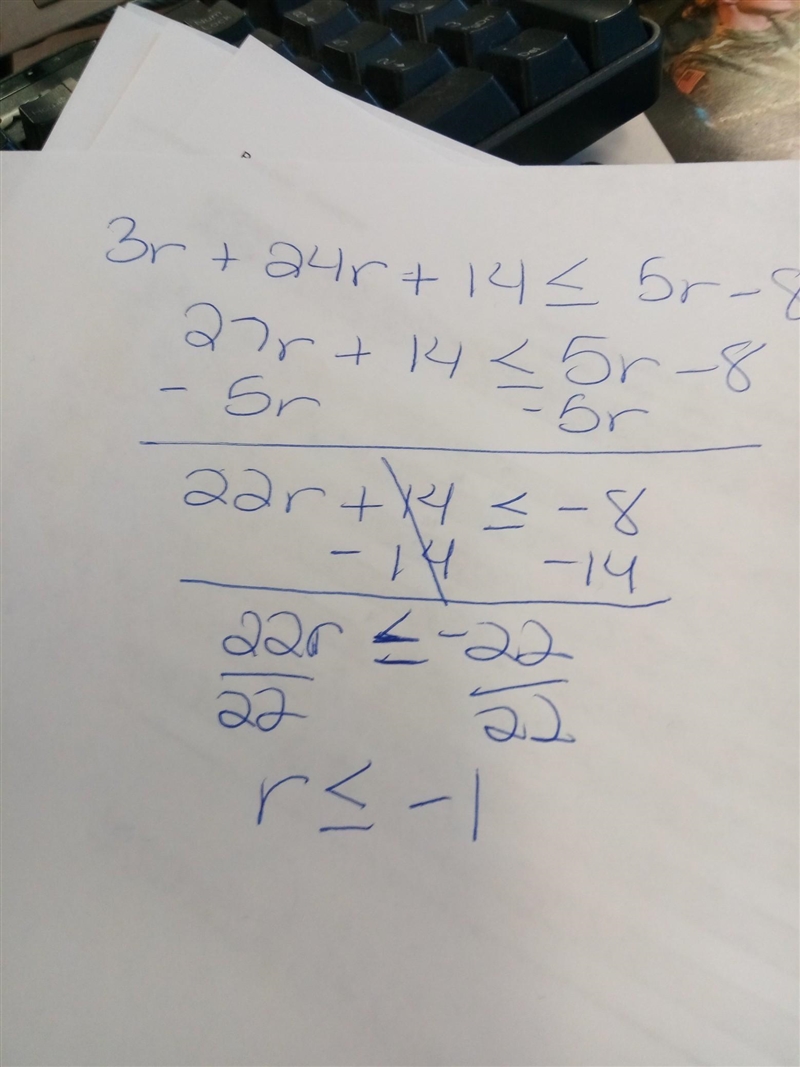 3r + 24r + 14 ≤ 5r - 8
27r + 14 ≤ 5r - 8
- 5r - 5r
22r + 14 ≤ - 8
- 14 - 14
22r ≤ -22
22 22
r ≤ -1